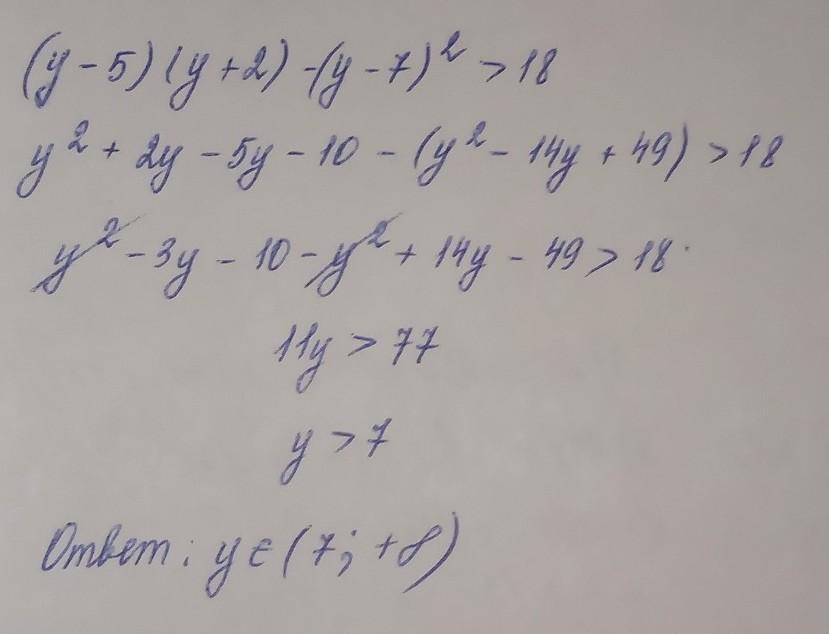 (y - 5)(y + 2) - (y - 7)² > 18
y² + 2y - 5y - 10 - (y² - 14y + 49) > 18
y² - 3y - 10 - y² + 14y - 49 > 18
11y > 77
y > 7
Ответ: y ∈ (7; +∞)